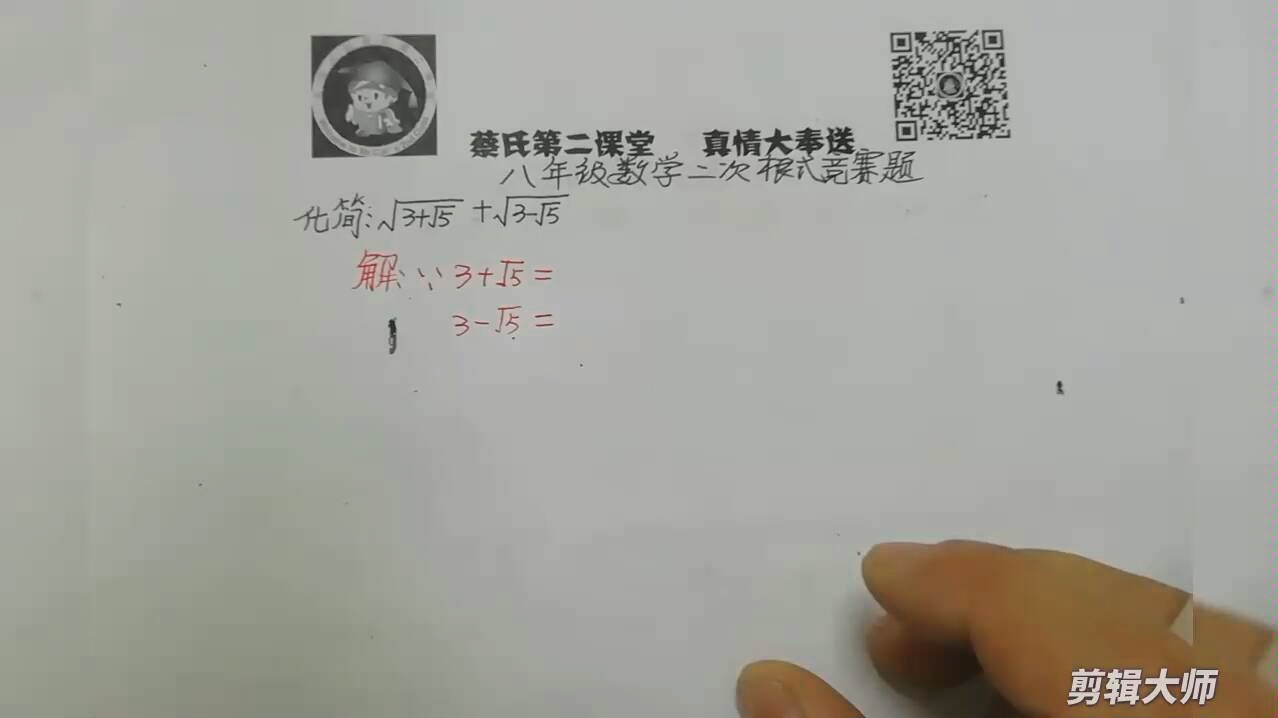 蔡氏第二课堂 真情大奉送
八年级数学二次根式竞赛题
化简:√(3+√5) +√(3-√5)
解:∵ 3+√5=
3-√5=
剪辑大师